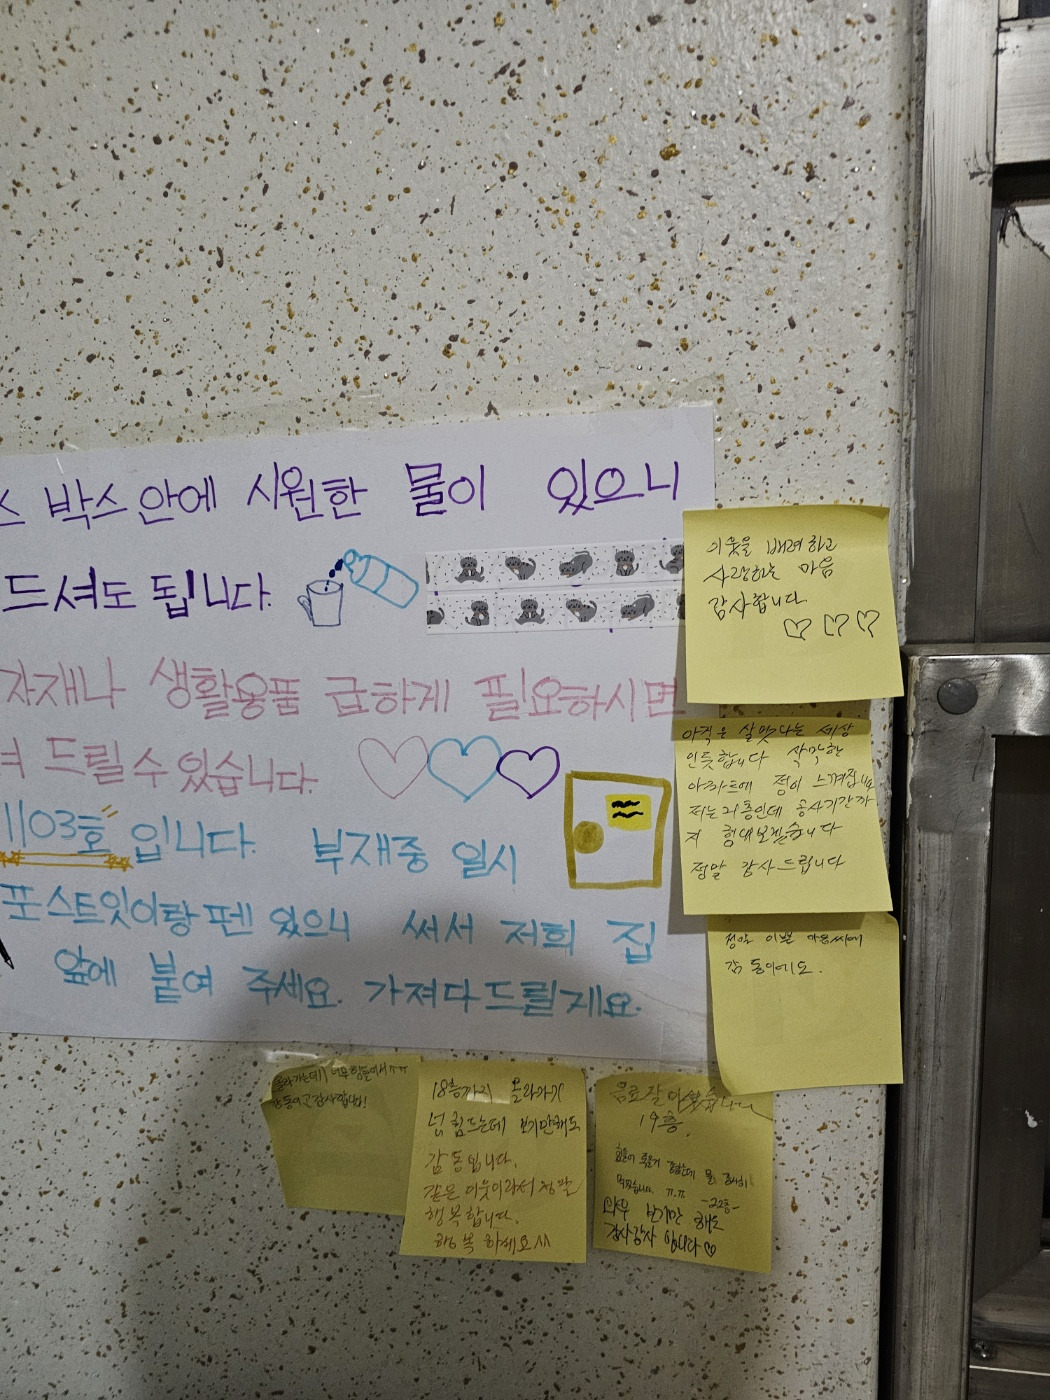 스 박스 안에 시원한 물이 있으니
드셔도 됩니다.
자재나 생활용품 급하게 필요하시면
드릴 수 있습니다.
1103호 입니다. 부재중 일시
포스트잇이랑 펜 있으니 써서 저희 집
앞에 붙여 주세요. 가져다 드릴게요.
이웃을 배려하고
사랑하는 마음
감사합니다
아직은 살맛나는 세상
인듯합니다 삭막한
아파트에 정이 느껴집니다
저는 21층인데 공사기간까
지 힘내보겠습니다
정말 감사드립니다
정말 이쁜 마음씨에
감동이에요.
감동이고 감사합니다!
18층까지 올라가기
넘 힘드는데 보기만해도
감동입니다.
같은 이웃이라서 정말
행복합니다.
행복하세요^^
음료 잘 마셨습니다
19층.
-22층-
너무 보기만 해도
감사감사 입니다♡